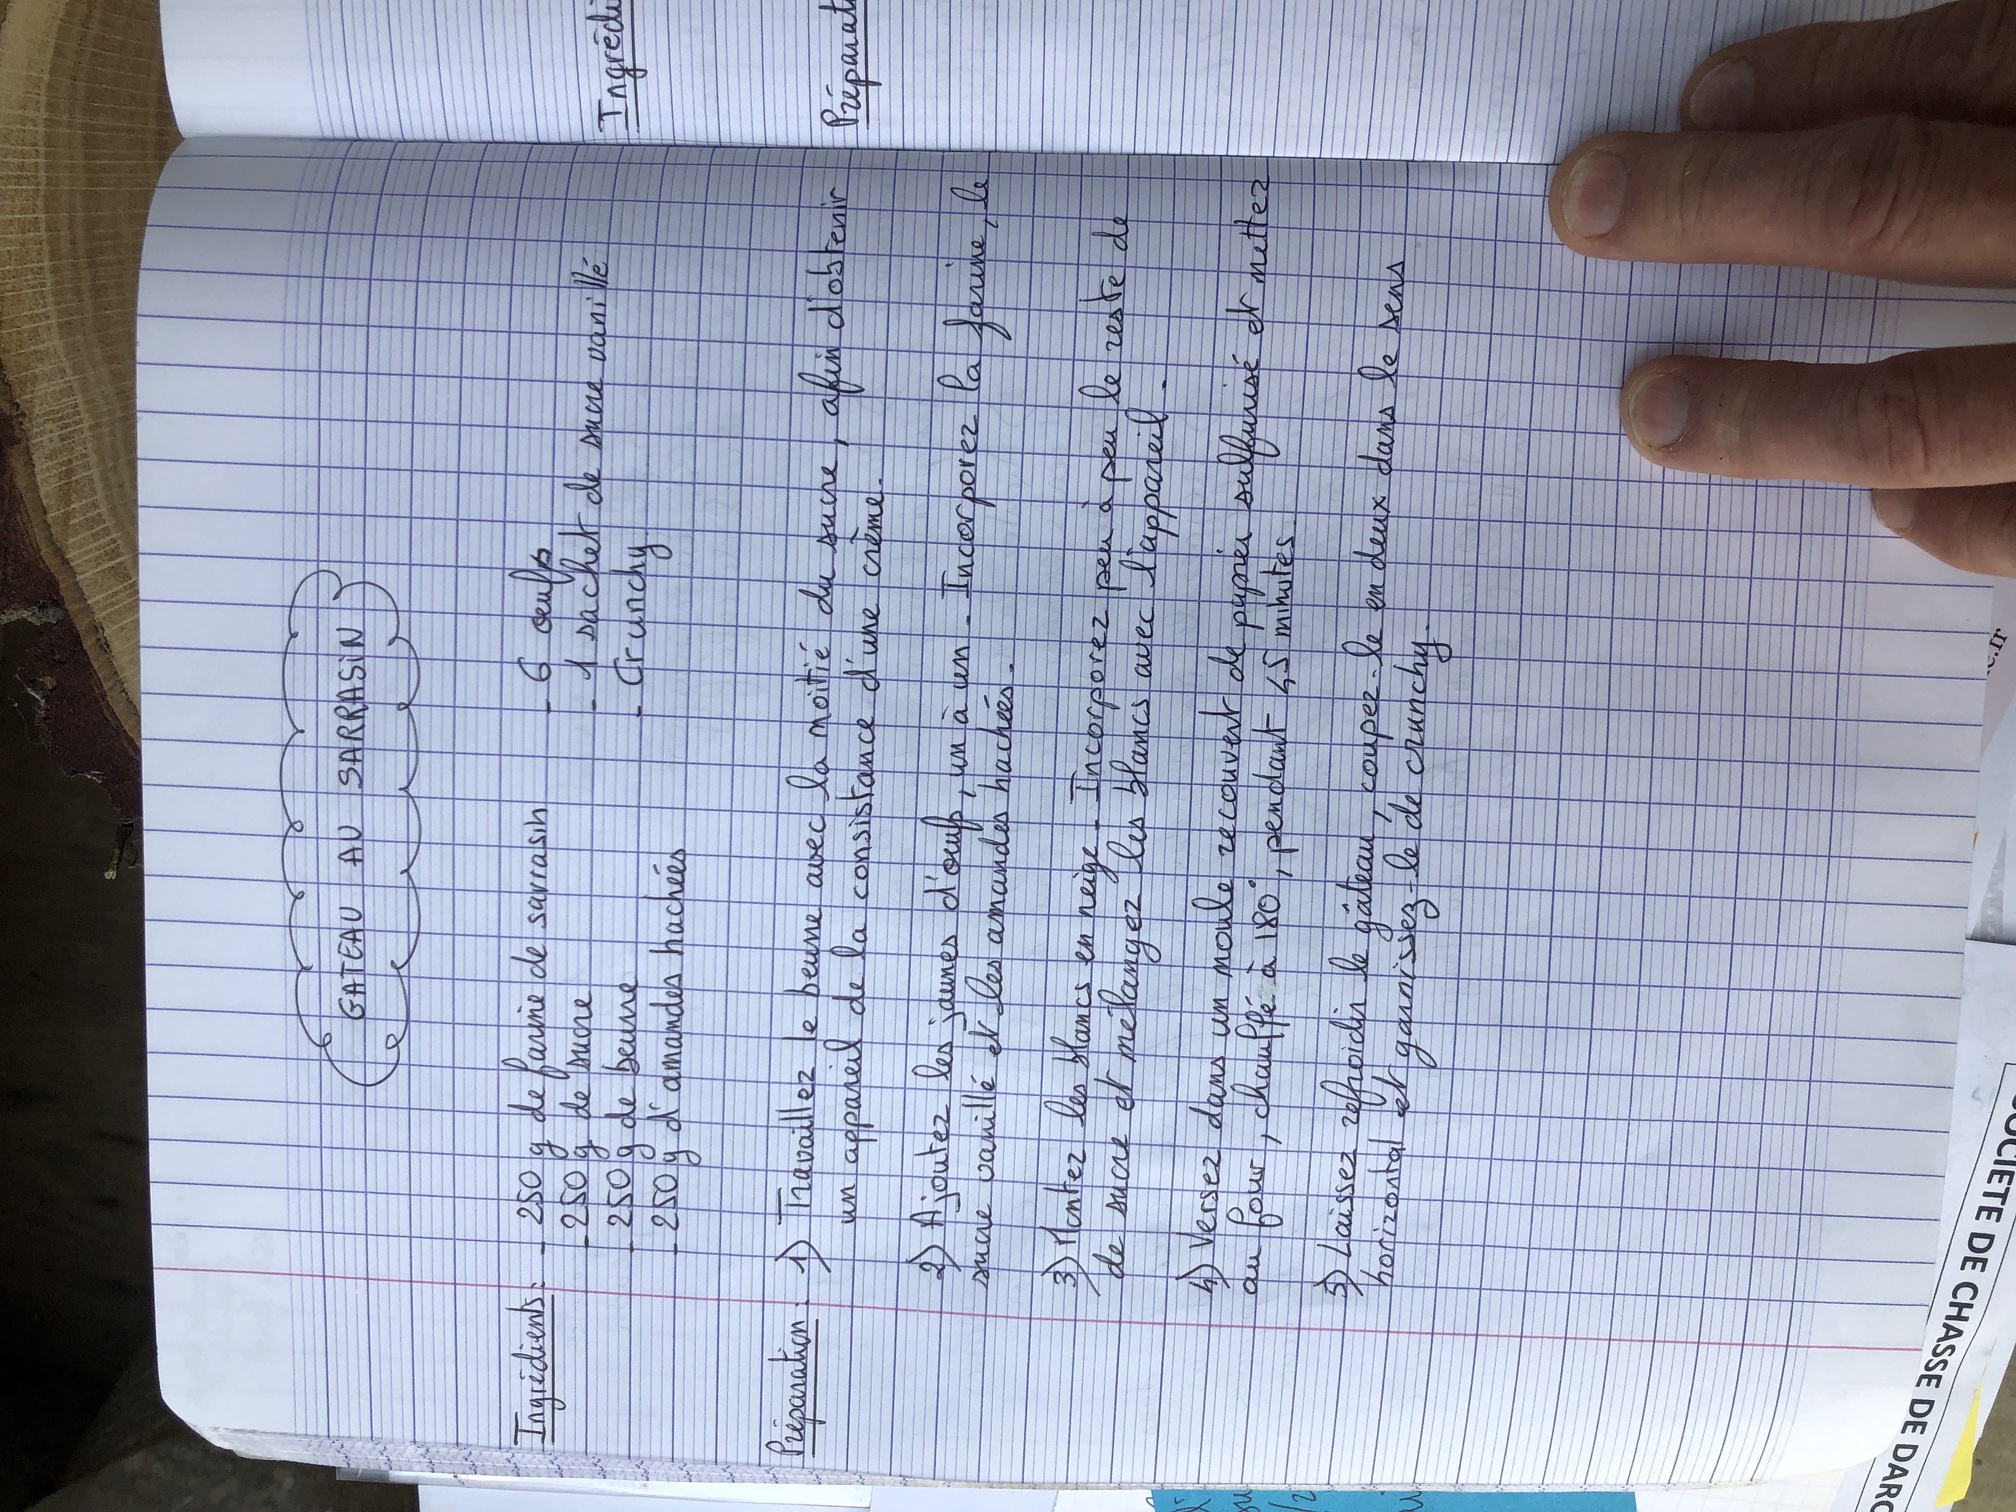 GATEAU AU SARRASIN
Ingrédients : - 250 g de farine de sarrasin - 6 œufs
- 250 g de sucre - 1 sachet de sucre vanillé
- 250 g de beurre - Crunchy
- 250 g d'amandes hachées
Préparation : 1) Travaillez le beurre avec la moitié du sucre, afin d'obtenir
un appareil de la consistance d'une crème.
2) Ajoutez les jaunes d'œufs, un à un. Incorporez la farine, le
sucre vanillé et les amandes hachées.
3) Montez les blancs en neige. Incorporez peu à peu le reste de
de sucre et mélangez les blancs avec l'appareil.
4) Versez dans un moule recouvert de papier sulfurisé et mettez
au four, chauffé à 180°, pendant 45 minutes.
5) Laissez refroidir le gâteau, coupez-le en deux dans le sens
horizontal et garnissez-le de crunchy.
Ingrédi
Préparati
SOCIETE DE CHASSE DE DARC